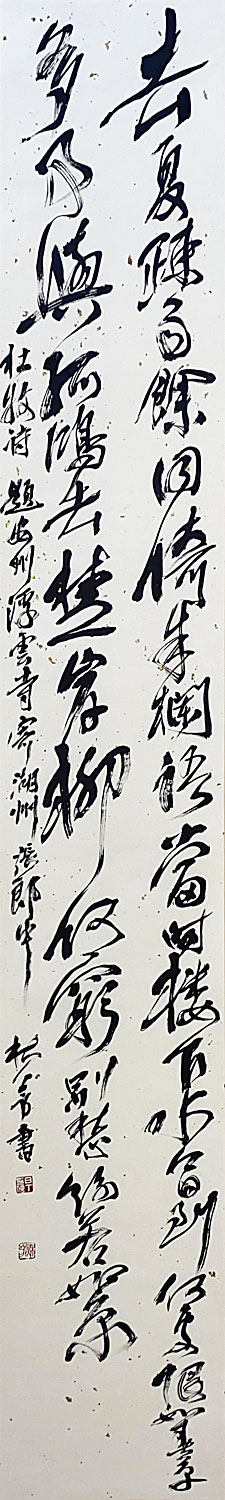 去夏疎雨餘同倚朱欄語當時樓下水今日到何處恨如春草
多事與孤鴻去楚岸柳何窮別愁紛若絮
杜牧詩 題安州浮雲寺寄湖州張郎中 書